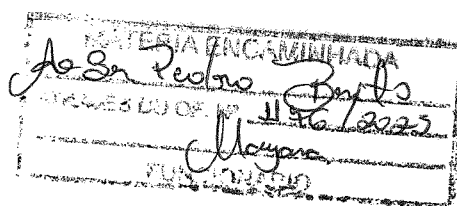 MATÉRIA ENCAMINHADA
Ao Sr Pedro
ATRAVÉS DO OF. Nº 1176/2025
Mayara
FUNCIONÁRIO